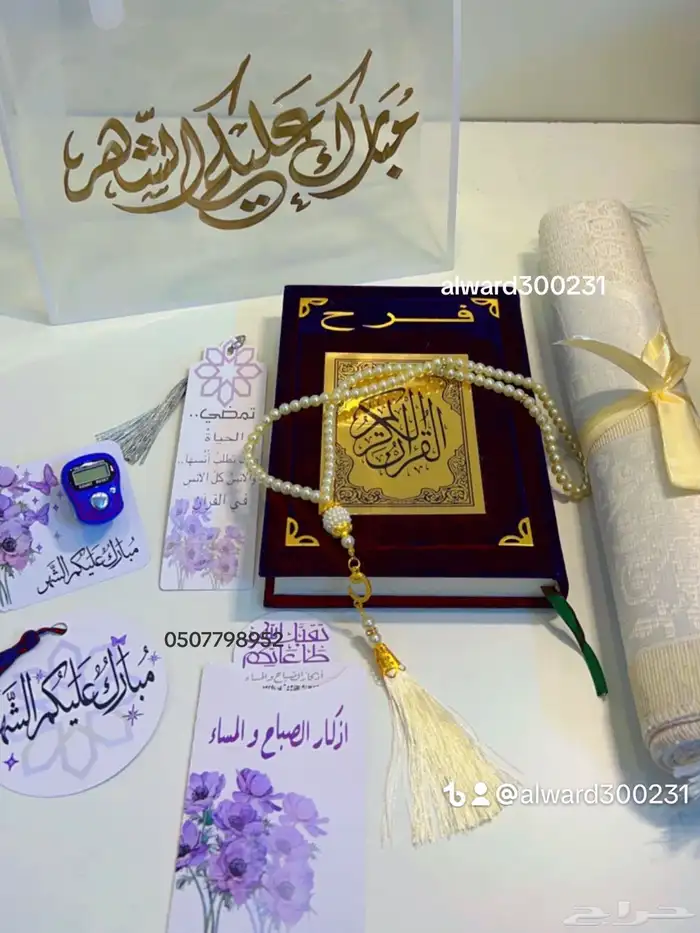 مبارك عليكم الشهر
alward300231
فرح
القرآن الكريم
تمضي..
الحياة
تطلب أنسها..
والأنس كل الانس
في القرآن
مبارك عليكم الشهر
0507798952
تقبل الله
طاعاتكم
أذكار الصباح والمساء
مبارك عليكم الشهر
اذكار الصباح و المساء
@alward300231
حراج